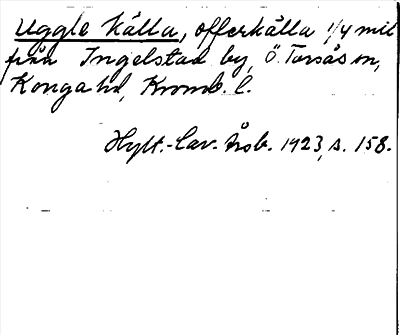 Uggle Källa, offerkälla 1/4 mil
från Ingelstad by, Ö. Torsås sn,
Konga hd, Kronob. l.
Hylt.-Cav. Årsb. 1923, s. 158.